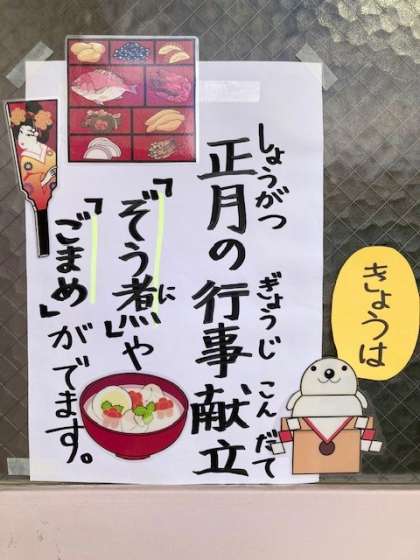 きょうは
正月の行事献立
しょうがつ ぎょうじ こんだて
「ぞう煮」や
に
「ごまめ」がでます。